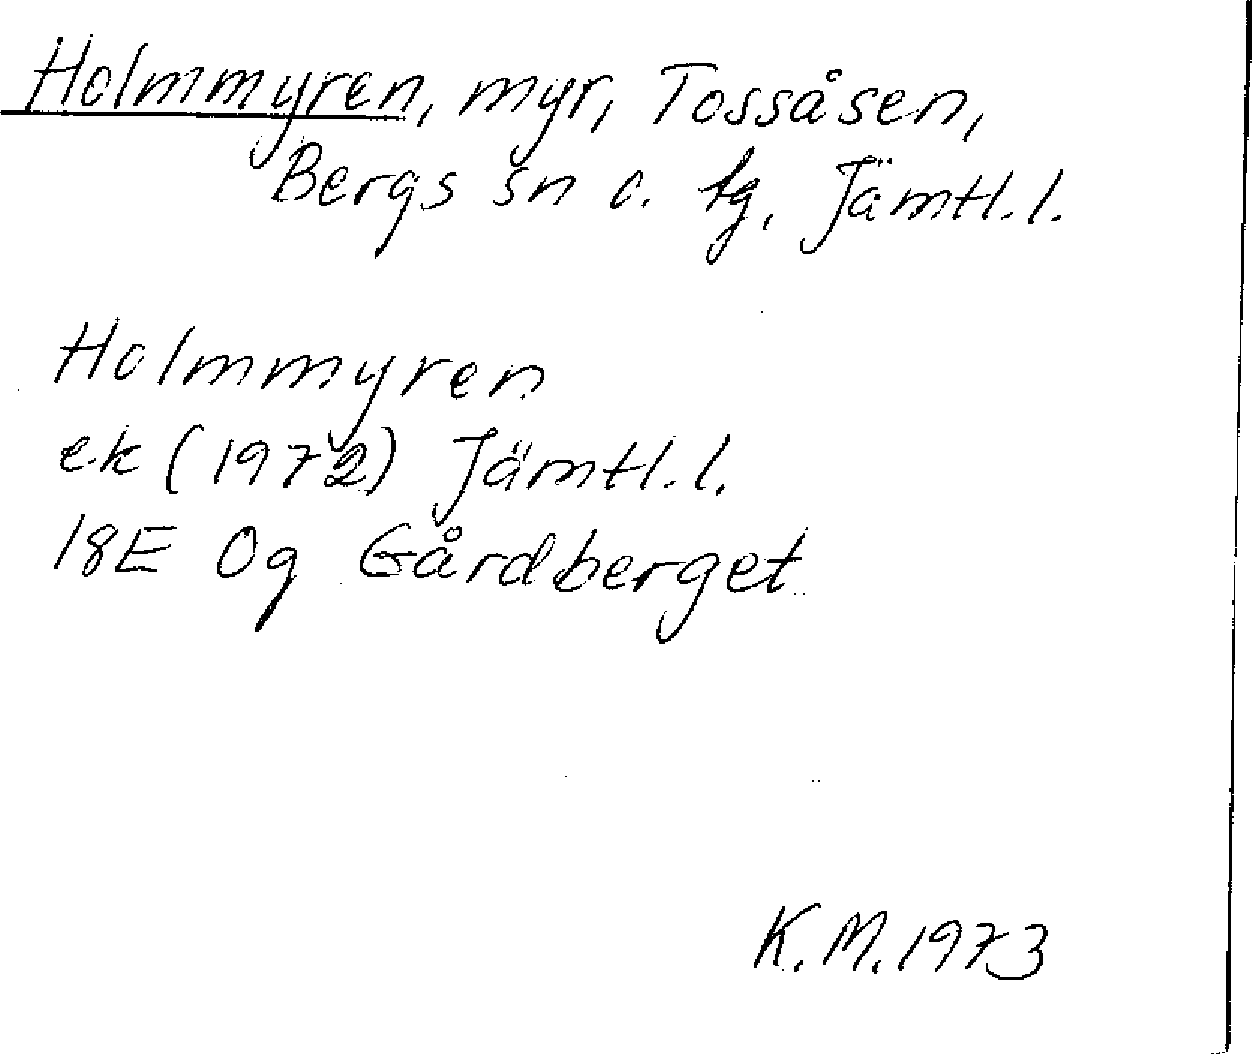 Holmmyren, myr, Tossåsen,
Bergs sn o. tg, Jämtl. l.
Holmmyren
ek (1972) Jämtl. l.
18E 0g Gårdberget
K. M. 1973